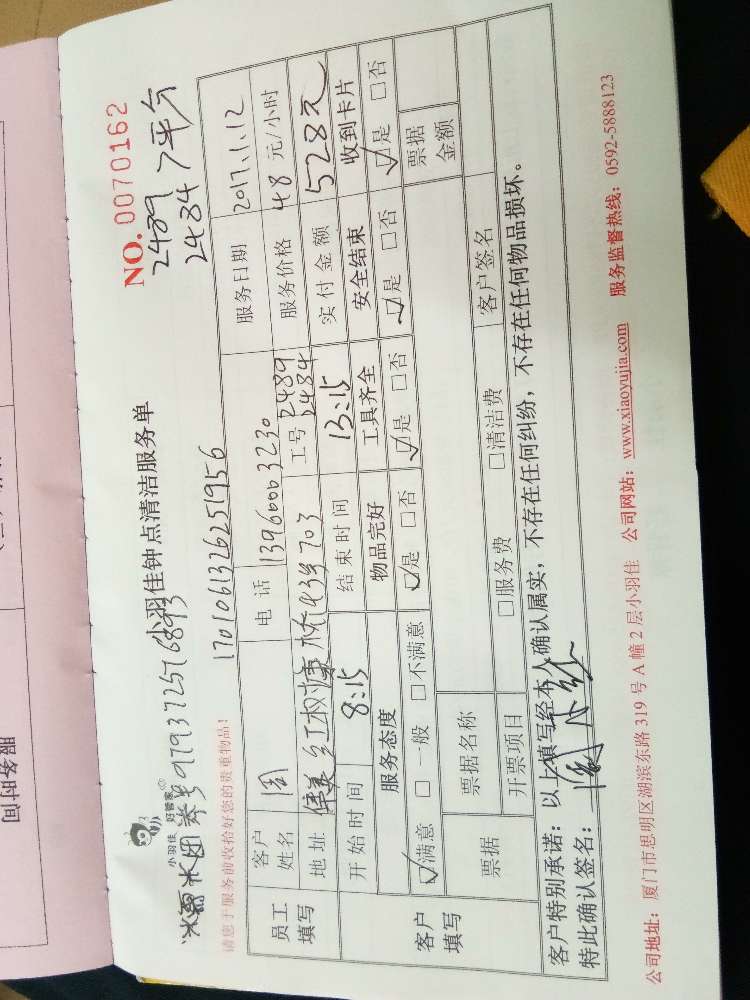 服务时间
小羽佳 好管家
NO. 0070162
小羽佳钟点清洁服务单
2489
2484 7平方
美团券号9793725716893
请您于服务前收拾好您的贵重物品!
1701061326251956
员工填写 客户姓名 周 电话 13960063230 服务日期 2017.1.12
地址 红树康桥43号703 工号 2489 2484 服务价格 48 元/小时
开始时间 8:15 结束时间 13:15 实付金额 528元
客户填写 服务态度 物品完好 工具齐全 安全结束 收到卡片
☑满意 □一般 □不满意 ☑是 □否 ☑是 □否 ☑是 □否 ☑是 □否
票据 票据名称 票据金额
开票项目 □服务费 □清洁费 客户签名
客户特别承诺:以上填写经本人确认属实,不存在任何纠纷,不存在任何物品损坏。
特此确认签名:
公司地址:厦门市思明区湖滨东路 319 号 A 幢 2 层小羽佳 公司网站:www.xiaoyujia.com 服务监督热线:0592-5888123